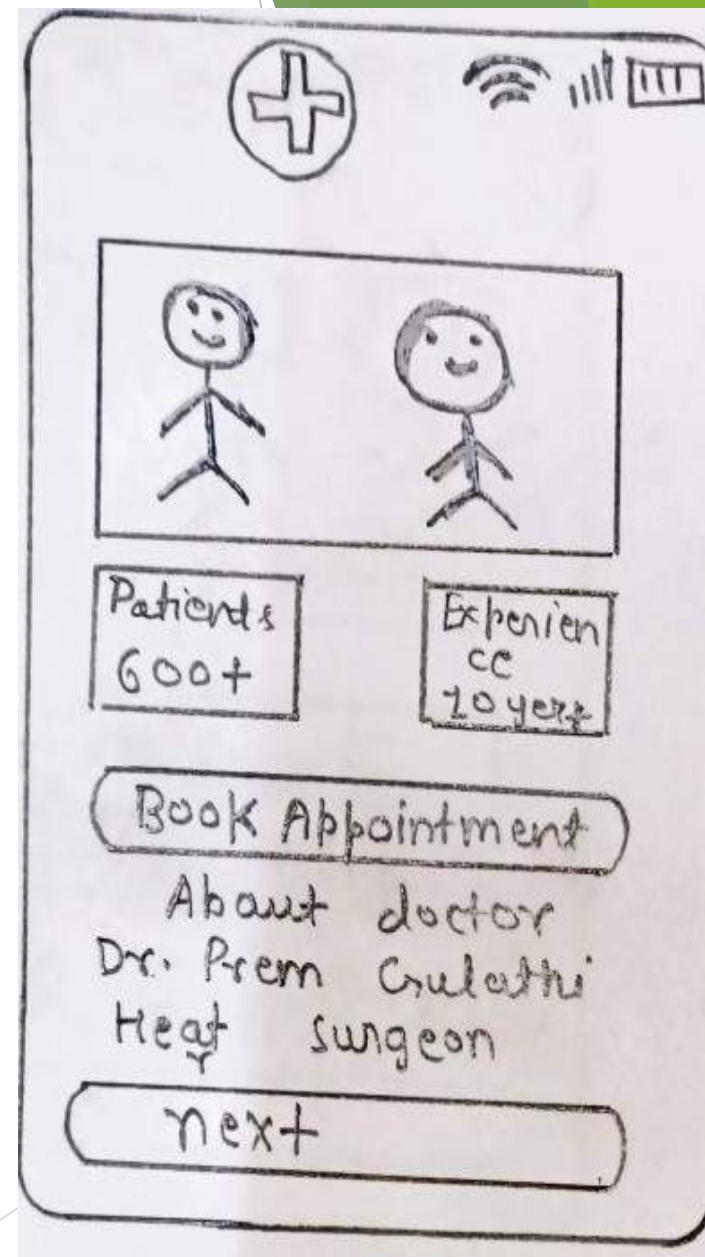 Patients
600+
Experien
ce
10 yer+
Book Appointment
About doctor
Dr. Prem Gulathi
Heart surgeon
next